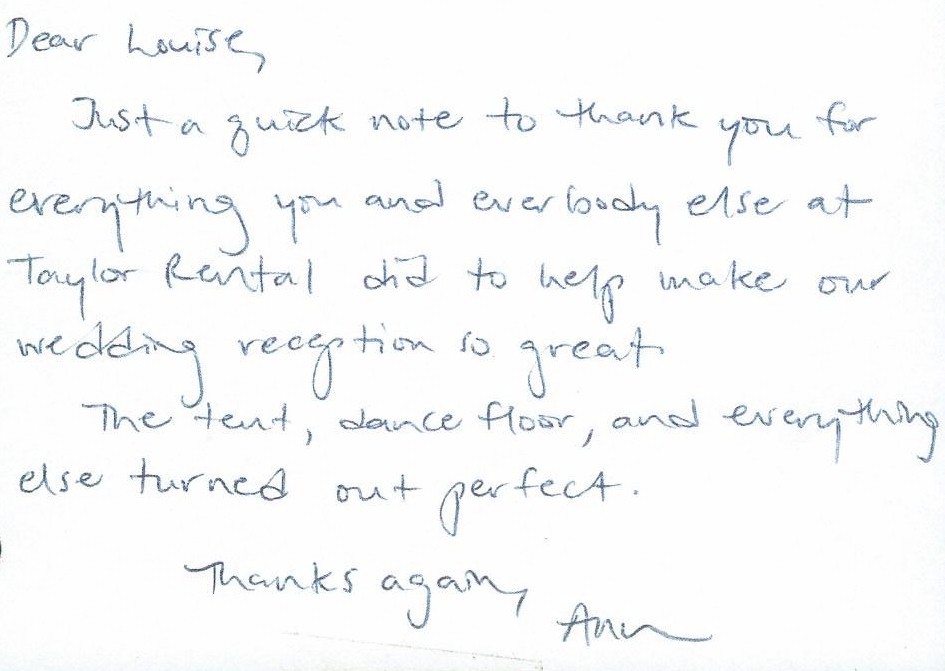 Dear Louise,
Just a quick note to thank you for
everything you and everbody else at
Taylor Rental did to help make our
wedding reception so great.
The tent, dance floor, and everything
else turned out perfect.
Thanks again,
Ann